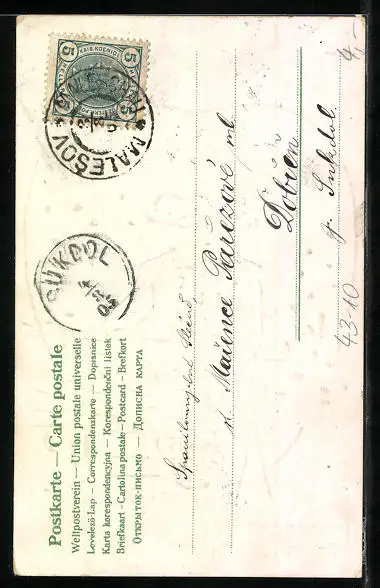 Postkarte — Carte postale
Weltpostverein — Union postale universelle
Levelező-Lap — Correspondenzkarte — Dopisnice
Karta korespondencyjna — Korespondenční lístek
Briefkaart — Cartolina postale — Postcard — Brefkort
Открытое-письмо — Дописна карта
5 5
KAIS. KOENIGL.
5 5
* MALEŠOV *
SUKDOL
Mařence
ml.
Dobřeň
p. Sukdol
4310
4,-